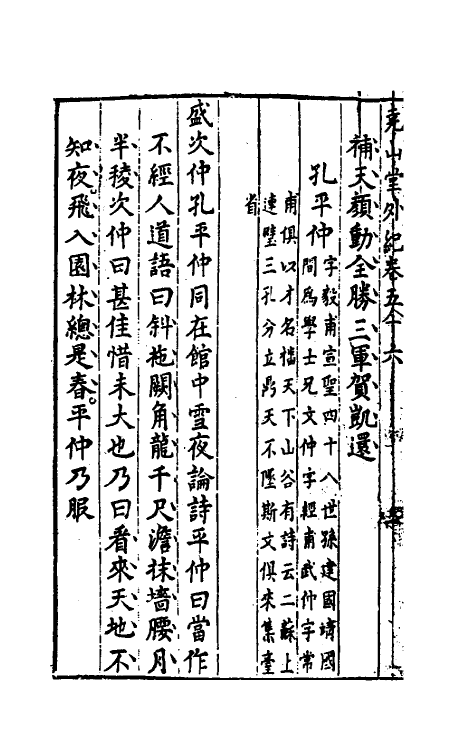 堯山堂外紀卷五十六
補天顏動全勝三軍賀凱還
孔平仲字毅甫宣聖四十八世孫建國靖國
間爲學士兄文仲字經甫武仲字常
甫俱以才名擅天下山谷有詩云二蘇上
連璧三孔分立鼎天不墜斯文俱來集臺
省
盛次仲孔平仲同在館中雪夜論詩平仲曰當作
不經人道語曰斜拖闕角龍千尺澹抹墻腰月
半稜次仲曰甚佳惜未大也乃曰看來天地不
知夜飛入園林總是春平仲乃服